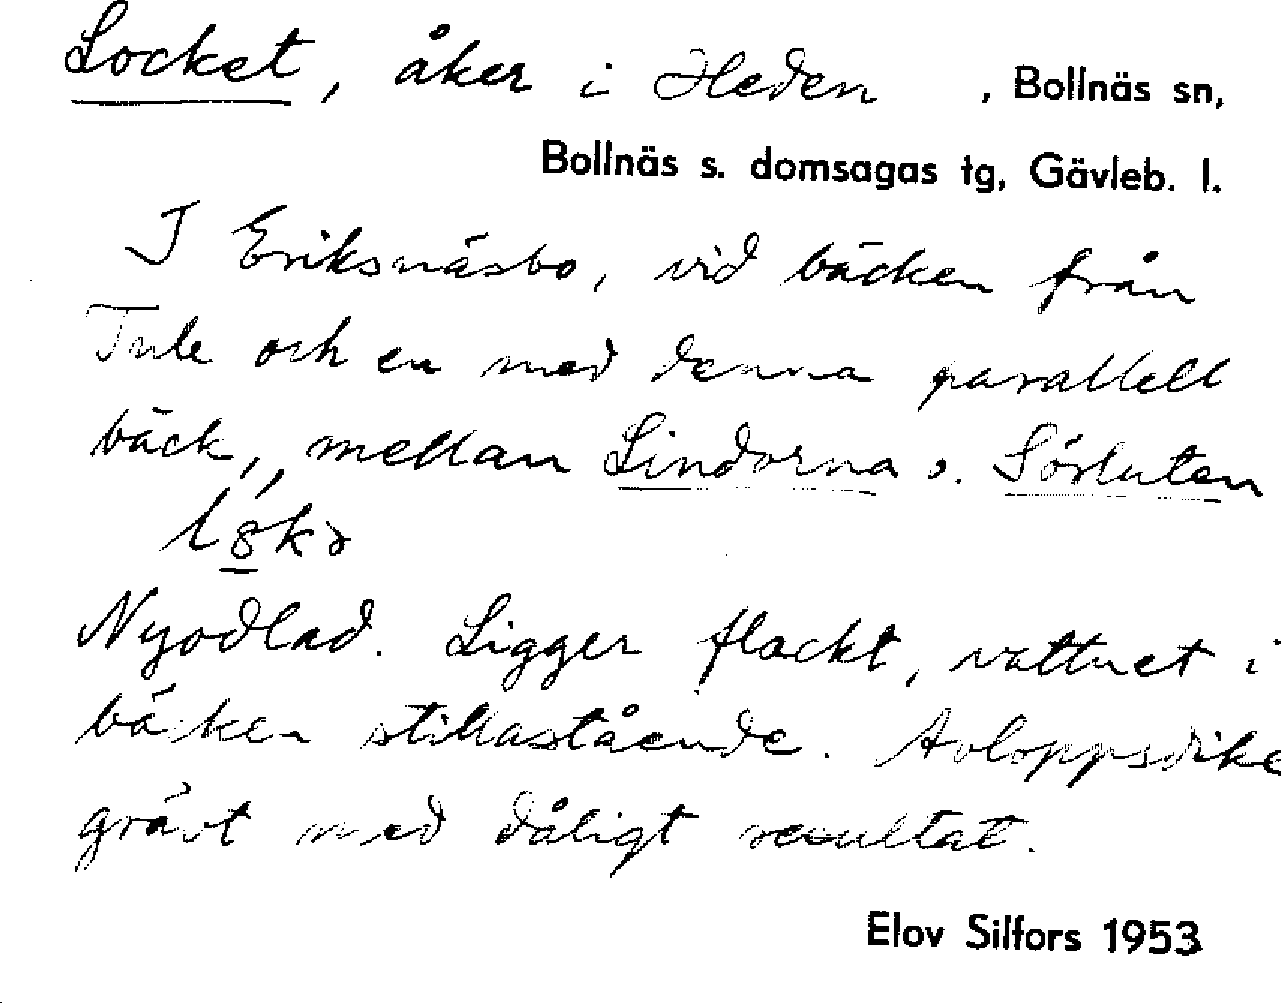 Locket, åker i Heden, Bollnäs sn,
Bollnäs s. domsagas tg, Gävleb. l.
I Eriksnäsbo, vid bäcken från
Tule och en med denna parallell
bäck, mellan Lindorna o. Sörluten
Nyodlad. Ligger flackt, vattnet i
bäcken stillastående. Avloppsdike
grävt med dåligt resultat.
Elov Silfors 1953